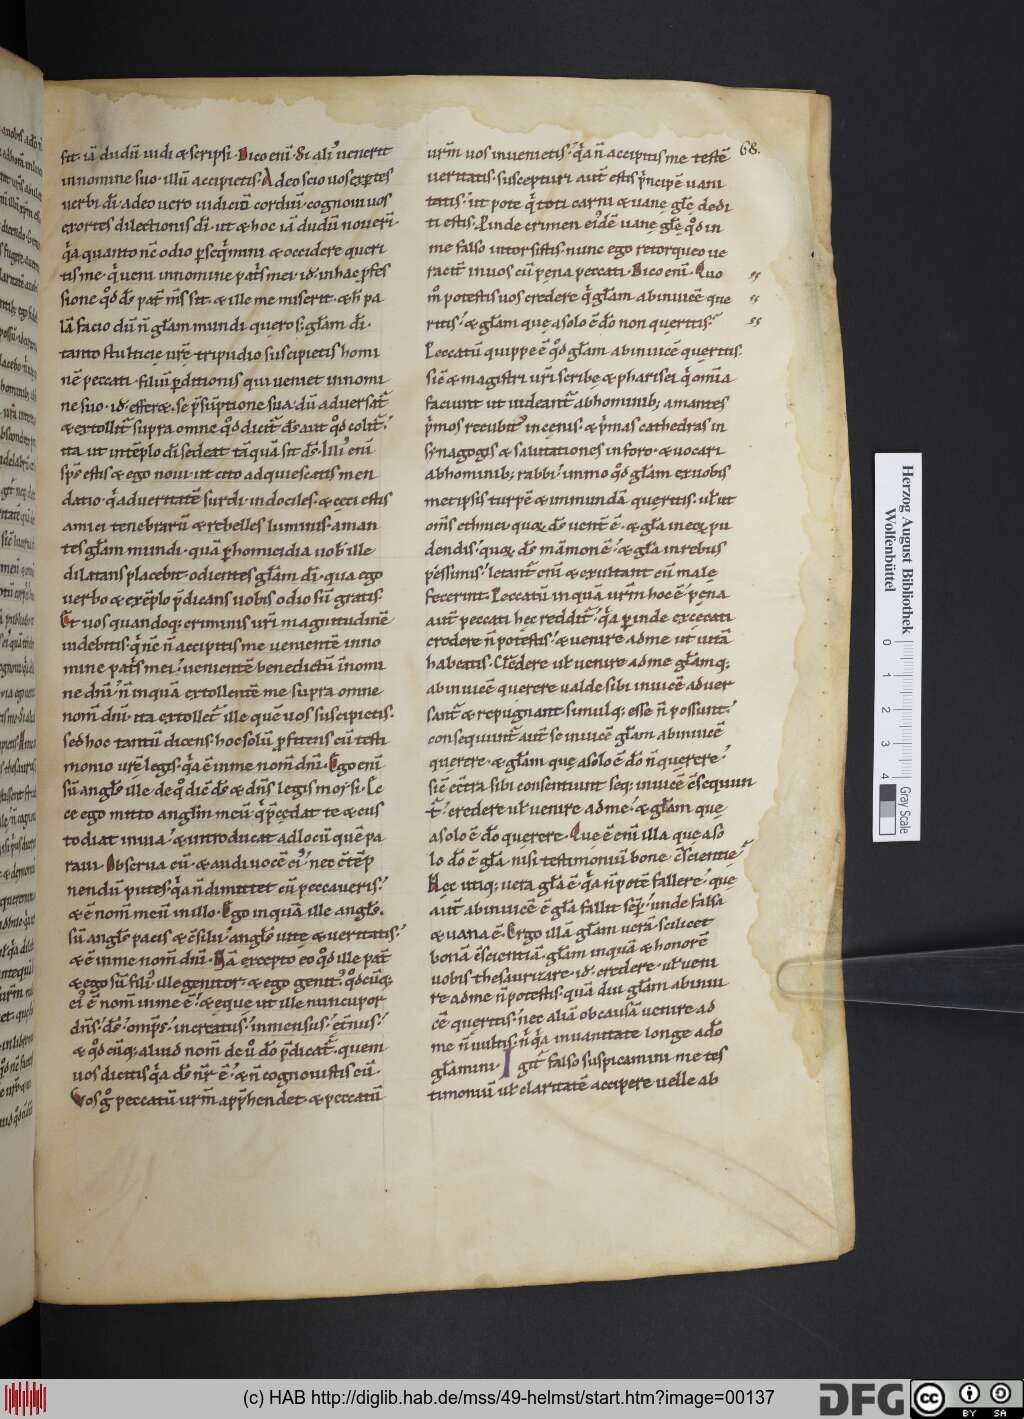 sit iā dudū uidi & scripsi. Dico enī. Si aliꝰ uenerit
innomine suo. illū accipietis. Adeo scio uos expertes
uerbi dī. adeo uero uidiciū cordiū. cognoui uos
exortes dilectionis dī. ut & hoc iā dudū noueri
q̇a quanto nc̄ odio ꝑseq̇mini & occidere queri
tis me. q̇ ueni innomine pat̄s mei. id. inhac ꝓfes
sione qđ ds̄ pat̄ m̄s sit. & ille me miserit. & h̄ pa
lā facio dū n̄ gl̄am mundi quero. s; gl̄am dī.
tanto stulticię ur̄e tripudio suscipietis homi
nē peccati. filiū ꝑditionis qui ueniet innomi
ne suo. id. efferæ. se p̄sūptione sua. dū aduersat̄
& extollit̄ supra omne qđ dicit̄ ds̄ aut qđ colit̄.
ita ut intēplo dī sedeat tāquā sit ds̄. Illiꝰ enī
sp̄s estis & ego noui. ut cito adquiescatis men
datio. q̇a aduertatē surdi. indociles. & ceci estis
amici tenebrarū & rebelles luminis. aman
tes gl̄am mundi. quā ꝑhomicidia uob̄ ille
dilatans placebit. odientes gl̄am dī. qua ego
uerbo & exēplo p̄dicans uobis odio sū gratis.
Et uos quandoq; criminis ur̄i magnitudinē
uidebitis. q̇ nc̄ n̄ accipitis me uenientē inno
mine pat̄s mei. uenientē benedictū īnomi
ne dn̄i. n̄ inquā extollentē me supra om̄ne
nom̄ dn̄i. ita extollet̄ ille quē uos suscipietis.
sed hoc tantū dicens. hoc solū ꝓfitens cū testi
monio ur̄e legis. q̇a ē inme nom̄ dn̄i. Ego enī
sū angl̄s ille. de qͦ diē ds̄ & dn̄s legis moysi. Ec
ce ego mitto angl̄m meū q̇ p̄cedat te & cus
todiat inuia. & introducat adlocū quē pa
raui. Obserua eū. & audi uocē eiꝰ. nec ctēp
nendū putes. q̇a n̄ dimittet cū peccaueris.
& ē nom̄ meū in illo. Ego inquā ille angl̄s.
sū angl̄s pacis & csilii. angl̄s uitę & ueritatis.
& ē inme nom̄ dn̄i. Nā excepto eo qđ ille pat̄
& ego sū filiꝰ. ille genitor. & ego genitꝰ. qđcūq;
eiꝰ ē nom̄ inme ē. & eque ut ille nuncupor
dn̄s. ds̄. omps̄. increatus. inmensus. et̄nus.
& qđcūq; aliud nom̄ de uͦ dō p̄dicat̄. quem
uos dicitis q̇a ds̄ nr̄ ē. & n̄ cognouistis eū.
Vos gͦ peccatū urm̄ app̄hendet. & peccatū
68.
urm̄ uos inuenietis. q̇a n̄ accipitis me testē
ueritatis. suscepturi aut̄ estis p̄ncipē uani
tatis. ut pote q̇ toti carni & uanę glē dedi
ti estis. Proinde crimen eiꝰdē uanę glē. qđ in
me falso intorsistis. nunc ego retorqueo ue
racit̄ inuos cū pęna peccati. Dico enī. Quo
m̊ potestis uos credere q̇ gl̄am abinuicē que
ritis. & gl̄am quę asolo ē dō non queritis.
Peccatū quippe ē qđ gl̄am abinuicē queritis.
sic̄ & magistri ur̄i scribę & pharisei. q̇ om̄ia
faciunt ut uideant̄ abhominib; amantes
p̄mos recubitꝰ incenis. & p̄mas cathedras in
synagogis & salutationes inforo. & uocari
abhominib; rabbi. immo qđ gl̄am exuobis
metipsis turpē & immundā queritis. uł ut
om̄s ethnici. quoꝝ ds̄ uent̄ ē. & gl̄a ineoꝝ pu
dendis. quoꝝ ds̄ māmon ē. & gl̄a inrebus
pessimis. letant̄ enī & exultant cū male
fecerint. Peccatū inquā urm̄ hoc ē. pęna
aut̄ peccati hęc reddit̄. q̇a ꝑinde excecati
credere n̄ potestis. & uenire adme ut uitā
habeatis. Credere uł uenire adme. gl̄amq;
abinuicē querere ualde sibi inuicē aduer
sant̄ & repugnant. simulq; esse n̄ possunt.
consequunt̄ aut̄ se inuicē gl̄am abinuicē
querere. & gl̄am quę asolo ē dō n̄ querere.
sic̄ ec̄tra sibi consentiunt seq; inuicē csequun
t̄. credere uł uenire adme. & gl̄am quę
asolo ē dō querere. Que ē enī illa que aso
lo dō ē gl̄a. nisi testimoniū bonę cscientię.
Hęc utiq; uera gl̄a ē. q̇a n̄ potē fallere. quę
aut̄ abinuicē ē gl̄a fallit sēp. unde falsa
& uana ē. Ergo illā gl̄am uerā. scilicet
bonā cscientiā. gl̄am inquā & honorē
uobis thesaurizare. id. credere. uł ueni
re adme n̄ potestis. quā diu gl̄am abinui
cē queritis. nec aliā ob causā uenire ad
me n̄ uultis. n̄ q̇a inuanitate longe adō
gl̄amini. Igit̄ falso suspicamini me tes
timoniū uł claritatē accipere uelle ab
Herzog August Bibliothek
Wolfenbüttel
0 1 2 3 4
Gray Scale
(c) HAB http://diglib.hab.de/mss/49-helmst/start.htm?image=00137
DFG
cc BY SA